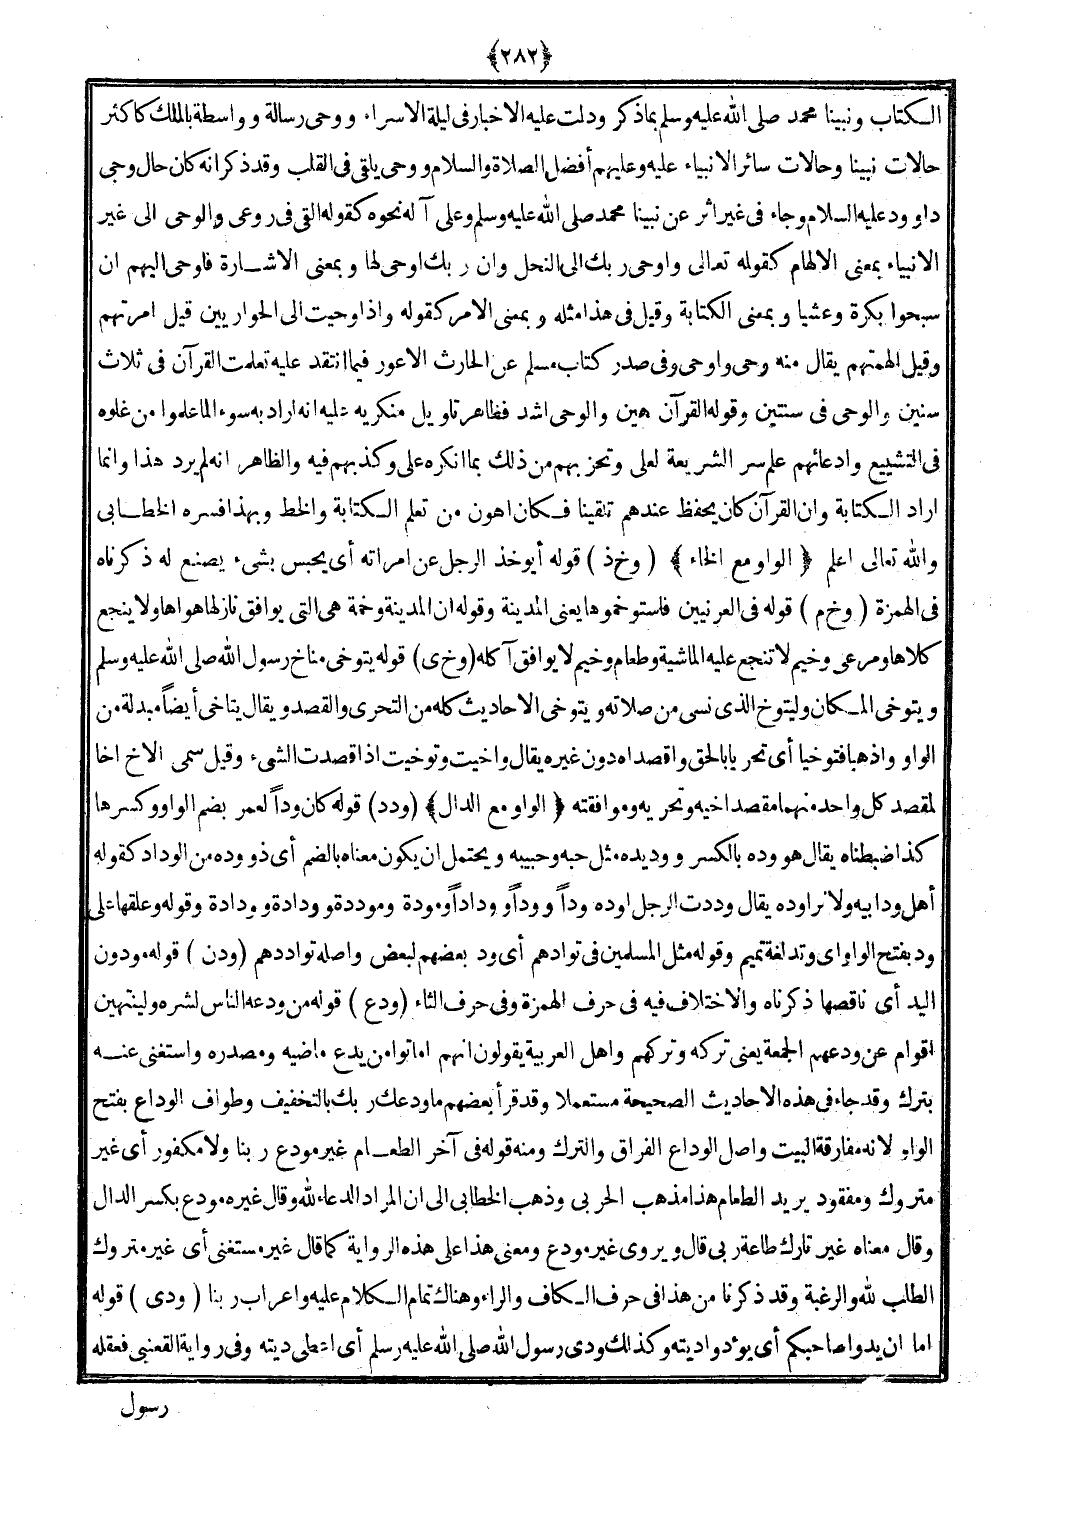 ﴿٢٨٢﴾
الكتاب ونبينا محمد صلى الله عليه وسلم بما ذكر ودلت عليه الاخبار فى ليلة الاسراء ووحى رسالة وواسطة بالملك كاكثر
حالات نبينا وحالات سائر الانبياء عليه وعليهم أفضل الصلاة والسلام ووحى يلقى فى القلب وقد ذكر انه كان حال وحى
داوود عليه السلام وجاء فى غير اثر عن نبينا محمد صلى الله عليه وسلم وعلى آله نحوه كقوله القى فى روعى والوحى الى غير
الانبياء بمعنى الالهام كقوله تعالى واوحى ربك الى النحل وان ربك اوحى لها وبمعنى الاشارة فاوحى اليهم ان
سبحوا بكرة وعشيا وبمعنى الكتابة وقيل فى هذا مثله وبمعنى الامر كقوله واذ اوحيت الى الحواريين قيل امرتهم
وقيل الهمتهم يقال منه وحى واوحى وفى صدر كتاب مسلم عن الحارث الاعور فيما انتقد عليه تعلمت القرآن فى ثلاث
سنين والوحى فى سنتين وقوله القرآن هين والوحى اشد فظاهر تاويل منكريه عليه انه اراد به سوء الما علموا من غلوه
فى التشييع وادعائهم علم سر الشريعة لعلى وتحزبهم من ذلك بما انكره على وكذبهم فيه والظاهر انه لم يرد هذا وانما
اراد الكتابة وان القرآن كان يحفظ عندهم تلقينا فكان اهون من تعلم الكتابة والخط وبهذا فسره الخطابى
والله تعالى اعلم ﴿ الواو مع الخاء ﴾ ( وخ ذ ) قوله أيوخذ الرجل عن امراته أى يحبس بشىء يصنع له ذكرناه
فى الهمزة ( وخ م ) قوله فى العرنيين فاستوخموها يعنى المدينة وقوله ان المدينة وخمة هى التى يوافق نازلها هواها ولا ينجع
كلاها ومرعى وخيم لا تنجع عليه الماشية وطعام وخيم لا يوافق آكله (وخ ى) قوله يتوخى مناخ رسول الله صلى الله عليه وسلم
ويتوخى المكان وليتوخ الذى نسى من صلاته ويتوخى الاحاديث كله من التحرى والقصد ويقال يتاخى أيضاً مبدلة من
الواو واذهبا فتوخيا أى تحريا بالحق واقصداه دون غيره يقال واخيت وتوخيت اذا قصدت الشىء وقيل سمى الاخ اخا
لمقصد كل واحد منهما مقصد اخيه وتحريه وموافقته ﴿ الواو مع الدال ﴾ (ودد) قوله كان وداً لعمر بضم الواو وكسرها
كذا ضبطناه يقال هو وده بالكسر ووديده مثل حبه وحبيبه ويحتمل ان يكون معناه بالضم أى ذو وده من الوداد كقوله
أهل ود ابيه ولا نراوده يقال وددت الرجل اوده وداً ووداً ووداداً ومودة وموددة وودادة وودادة وقوله وعلقها على
ود بفتح الواو اى وتد لغة تميم وقوله مثل المسلمين فى توادهم أى ود بعضهم لبعض واصله تواددهم (ودن ) قوله مودون
اليد أى ناقصها ذكرناه والاختلاف فيه فى حرف الهمزة وفى حرف الثاء (ودع ) قوله من ودعه الناس لشره ولينتهين
اقوام عن ودعهم الجمعة يعنى تركه وتركهم واهل العربية يقولون انهم اماتوا من يدع ماضيه ومصدره واستغنى عنه
بترك وقد جاء فى هذه الاحاديث الصحيحة مستعملا وقد قرأ بعضهم ما ودعك ربك بالتخفيف وطواف الوداع بفتح
الواو لانه مفارقة البيت واصل الوداع الفراق والترك ومنه قوله فى آخر الطعام غير مودع ربنا ولا مكفور أى غير
متروك ومفقود يريد الطعام هذا مذهب الحربى وذهب الخطابى الى ان المراد الدعاء لله وقال غيره مودع بكسر الدال
وقال معناه غير تارك طاعة ربى قال ويروى غير مودع ومعنى هذا على هذه الرواية كما قال غير مستغنى أى غير متروك
الطلب لله والرغبة وقد ذكرنا من هذا فى حرف الكاف والراء وهناك تمام الكلام عليه واعراب ربنا ( ودى ) قوله
اما ان يدوا صاحبكم أى يؤدوا ديته وكذلك ودى رسول الله صلى الله عليه وسلم أى اعطى ديته وفى رواية القعنبى فعقله
رسول